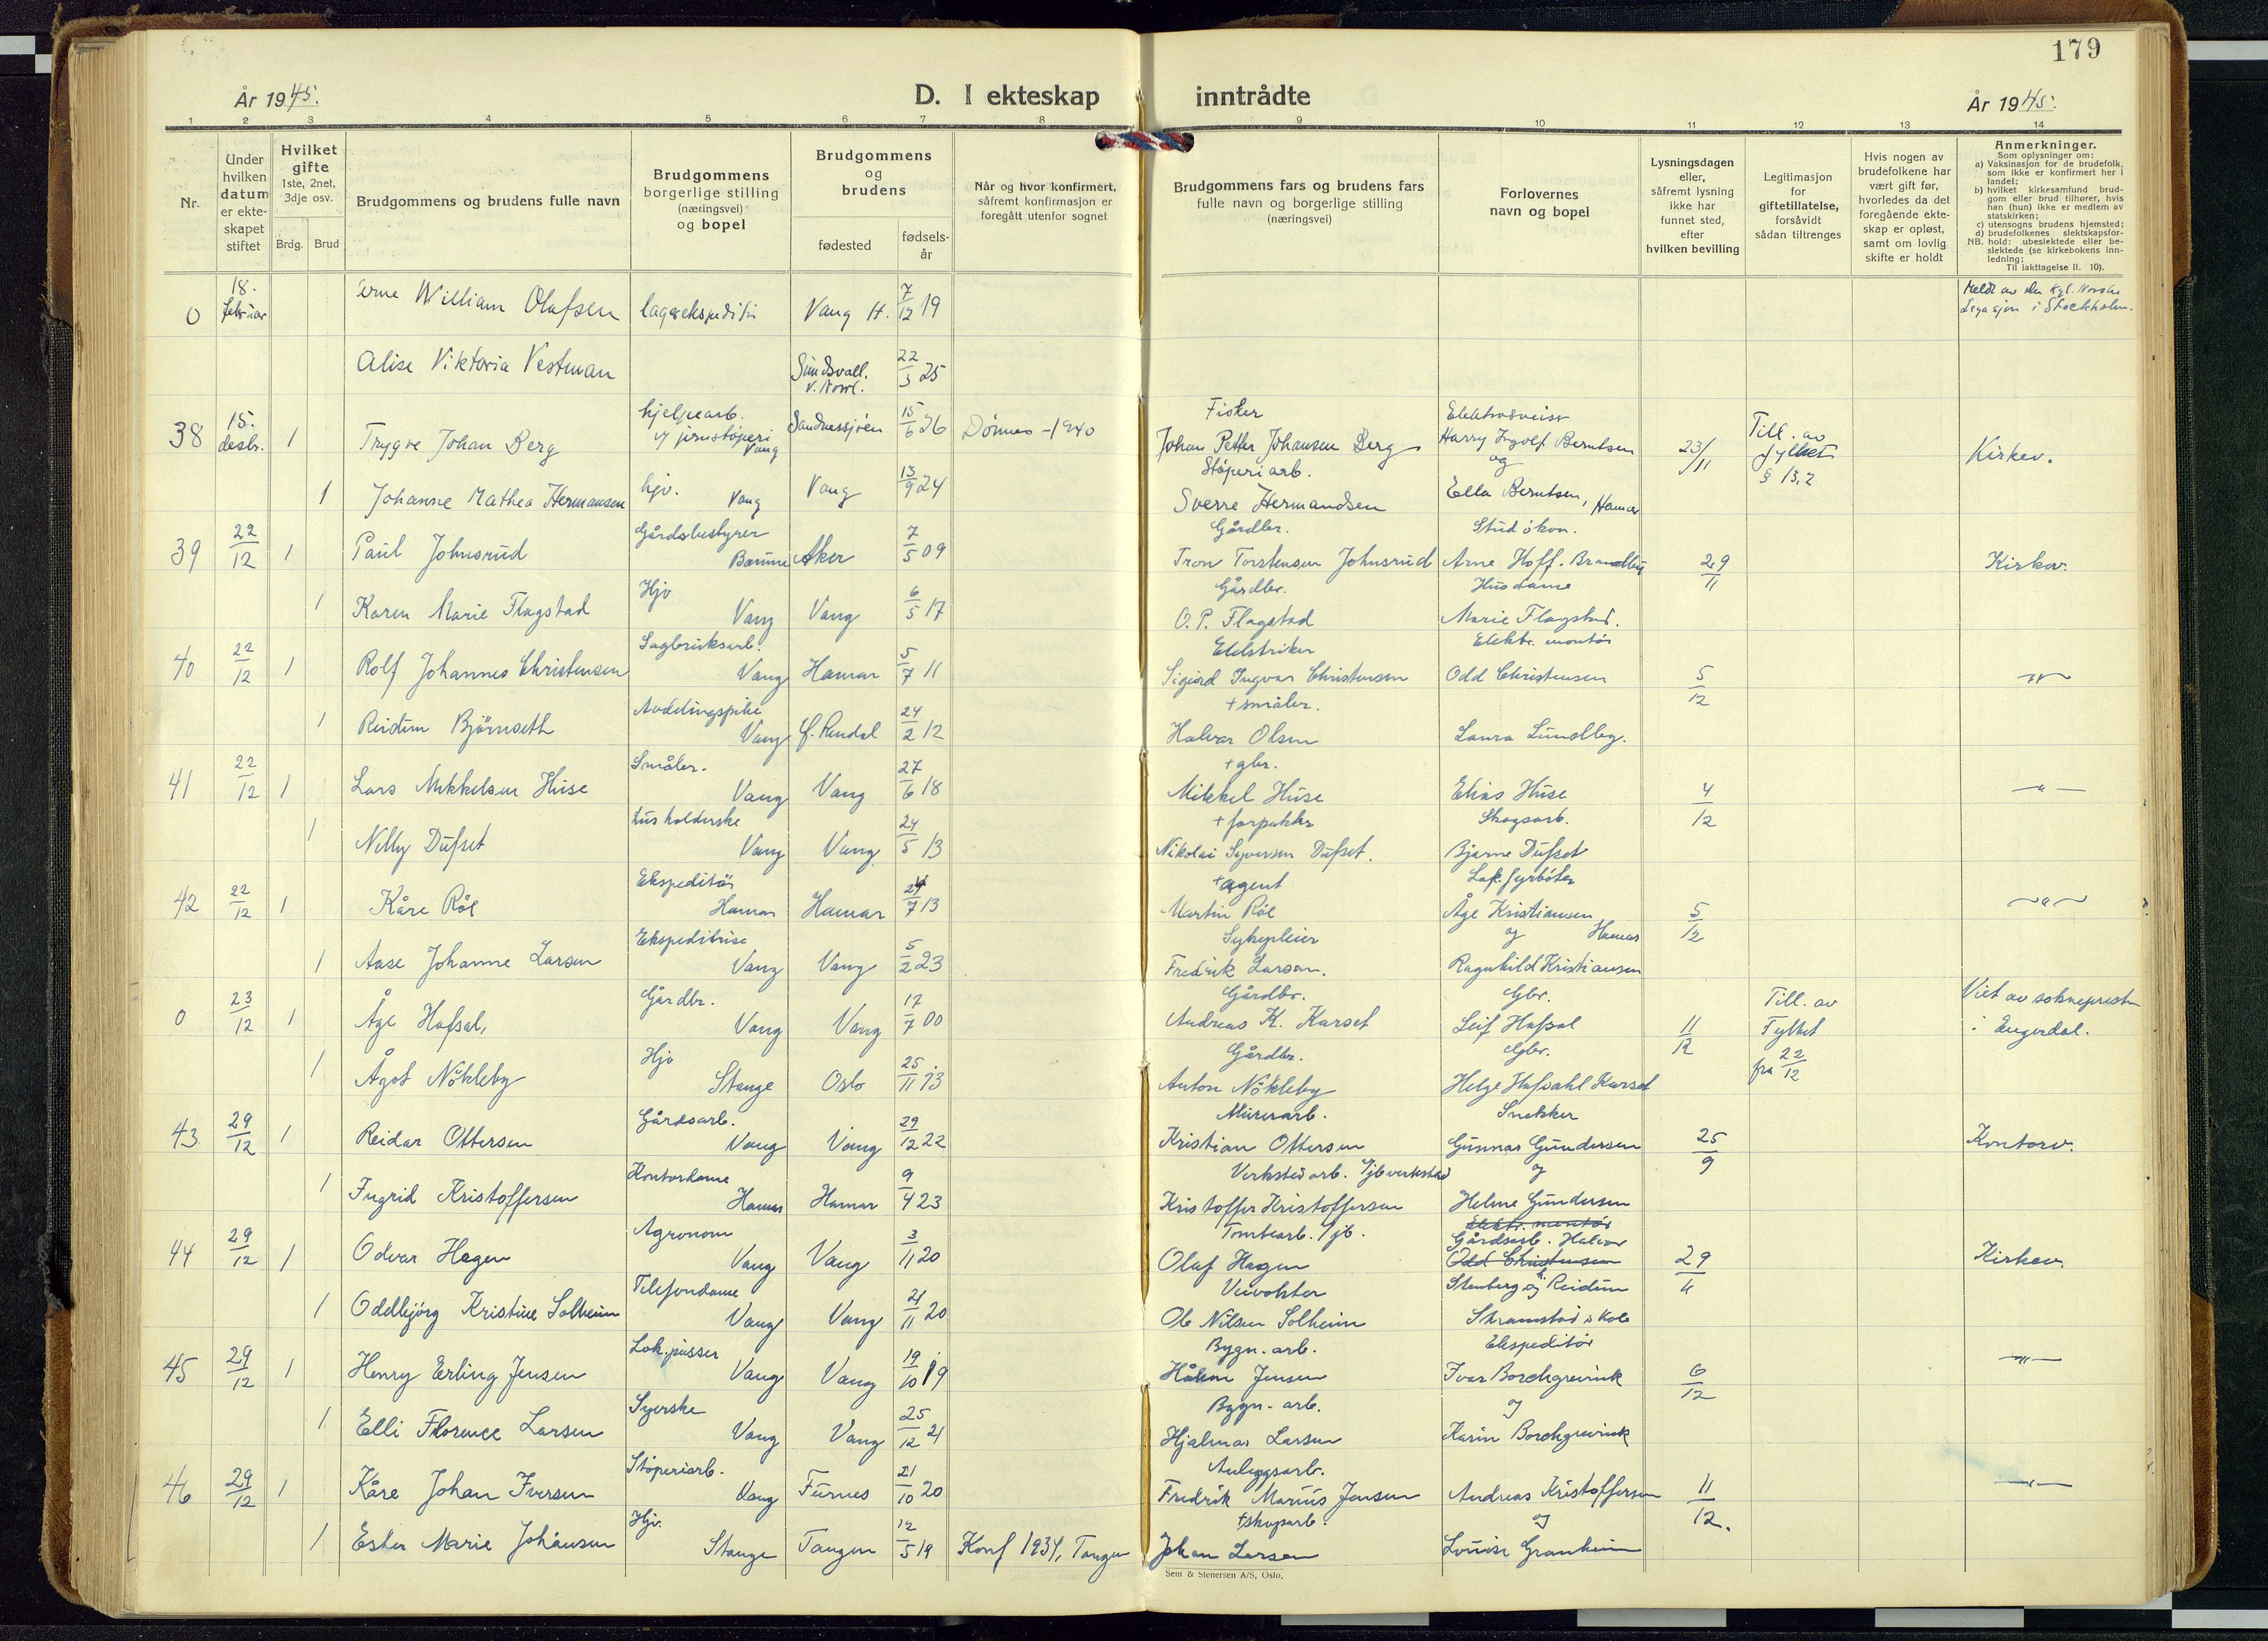 179
År 1945.
D. I ekteskap inntrådte
År 1945.
1 2 3 4 5 6 7 8 9 10 11 12 13 14
Nr.
Under hvilken datum er ekteskapet stiftet
Hvilket gifte 1ste, 2net, 3dje osv.
Brdg. Brud
Brudgommens og brudens fulle navn
Brudgommens borgerlige stilling (næringsvei) og bopel
Brudgommens og brudens
fødested
fødsels-år
Når og hvor konfirmert, såfremt konfirmasjon er foregått utenfor sognet
Brudgommens fars og brudens fars fulle navn og borgerlige stilling (næringsvei)
Forlovernes navn og bopel
Lysningsdagen eller, såfremt lysning ikke har funnet sted, efter hvilken bevilling
Legitimasjon for giftetillatelse, forsåvidt sådan tiltrenges
Hvis nogen av brudefolkene har vært gift før, hvorledes da det foregående ekteskap er opløst, samt om lovlig skifte er holdt
Anmerkninger.
Som oplysninger om:
a) Vaksinasjon for de brudefolk, som ikke er konfirmert her i landet;
b) hvilket kirkesamfund brudgom eller brud tilhører, hvis han (hun) ikke er medlem av statskirken;
c) utensogns brudens hjemsted;
d) brudefolkenes slektskapsforhold: ubeslektede eller beslektede (se kirkebokens innledning;
NB. Til iakttagelse II. 10).
0 18. februar Arne William Olafsen lagerekspeditør Vang H. 7/12 19 Meldt av den Kgl. Norske Legasjon i Stockholm.
Alise Viktoria Vestman Sundsvall. V. Norrl. 22/3 25
38 15. desbr. 1 Trygve Johan Berg hjelpearb. v/ jernstøperi Vang Sandnessjøen 15/6 26 Dønnes - 1940 Fisker Johan Petter Johansen Berg Elektrosveiser Harry Ingolf Berntsen og 23/11 Till. av fylket § 13,2 Kirkev.
1 Johanne Mathea Hermansen hjv. Vang Vang 13/9 24 Støperiarb. Sverre Hermandsen Ella Berntsen, Hamar
39 22/12 1 Paul Johnsrud Gårdsbestyrer Bærum Aker 7/5 09 Gårdbr. Tron Torstensen Johnsrud Stud økon. Arne Hoff. Brandbu 29/11 Kirkev.
1 Karen Marie Flagstad Hjv Vang Vang 6/5 17 Gårdbr. O. P. Flagstad Husdame Marie Flagstad.
40 22/12 1 Rolf Johannes Christensen Sagbruksarb. Vang Hamar 5/7 11 Sigurd Ingvar Christensen Elektr. montør Odd Christensen 5/12 -"-
1 Reidun Bjørnseth Avdelingspike Vang 24/2 12 + småbr. Halvar Olsen Laura Lundby.
41 22/12 1 Lars Mikkelsen Huse Småbr. Vang Vang 27/6 18 + gbr. Mikkel Huse Elias Huse 4/12 -"-
1 Nelly Dufset husholderske Vang Vang 24/5 13 + forpakter Nikolai Syversen Dufset. Skogsarb. Bjarne Dufset
42 22/12 1 Kåre Røe Ekspeditør Hamar Hamar 24/7 13 + agent Martin Røe Lok. fyrbøter Åge Kristiansen og Hamar 5/12 -"-
1 Aase Johanne Larsen Ekspeditrise Vang Vang 5/2 23 Sykepleier Fredrik Larsen. Ragnhild Kristiansen
0 23/12 1 Åge Hafsal, Gårdbr. Vang Vang 17/7 00 Gårdbr. Andreas K. Karset Gbr. Leif Hafsal 11/12 Till. av Fylket fra 22/12 Viet av sokneprest i Engerdal.
1 Ågot Nøkleby Hjv Stange Oslo 25/11 13 Gårdbr. Anton Nøkleby Gbr. Helge Hafsahl Karset
43 29/12 1 Reidar Ottersen Gårdsarb. Vang Vang 29/12 22 Murerarb. Kristian Ottersen Snekker Gunnar Gundersen og 25/9 Kontorv.
1 Ingrid Kristoffersen Kontordame Hamar Hamar 9/4 23 Verkstedarb. Kristoffer Kristoffersen Helene Gundersen
44 29/12 1 Odvar Hagen Agronom Vang Vang 3/11 20 Tomtearb. Olaf Hagen Elektr. montør Gårdsarb. Halvor Odd Christensen 29/11 Kirkev.
1 Oddbjørg Kristine Solheim Telefondame Vang Vang 21/11 20 Veivokter Ole Nilsen Solheim Stenberg og Reidun
45 29/12 1 Henry Erling Jensen Lok.pusser Vang Vang 19/10 19 Bygn. arb. Håkon Jensen Ekspeditør Ivar Borchgrevink og 6/12 -"-
1 Elli Florence Larsen Syerske Vang Vang 25/12 21 Bygn- arb. Hjalmar Larsen Karin Borchgrevink
46 29/12 1 Kåre Johan Iversen Støperiarb. Vang Furnes 21/10 20 Anleggsarb. Fredrik Marius Jensen Andreas Kristoffersen og 11/12. -"-
1 Ester Marie Johansen Hjv. Stange Tangen 12/5 19 Konf 1934, Tangen + skogarb. Johan Larsen Louise Granheim
Sem & Stenersen A/S, Oslo.